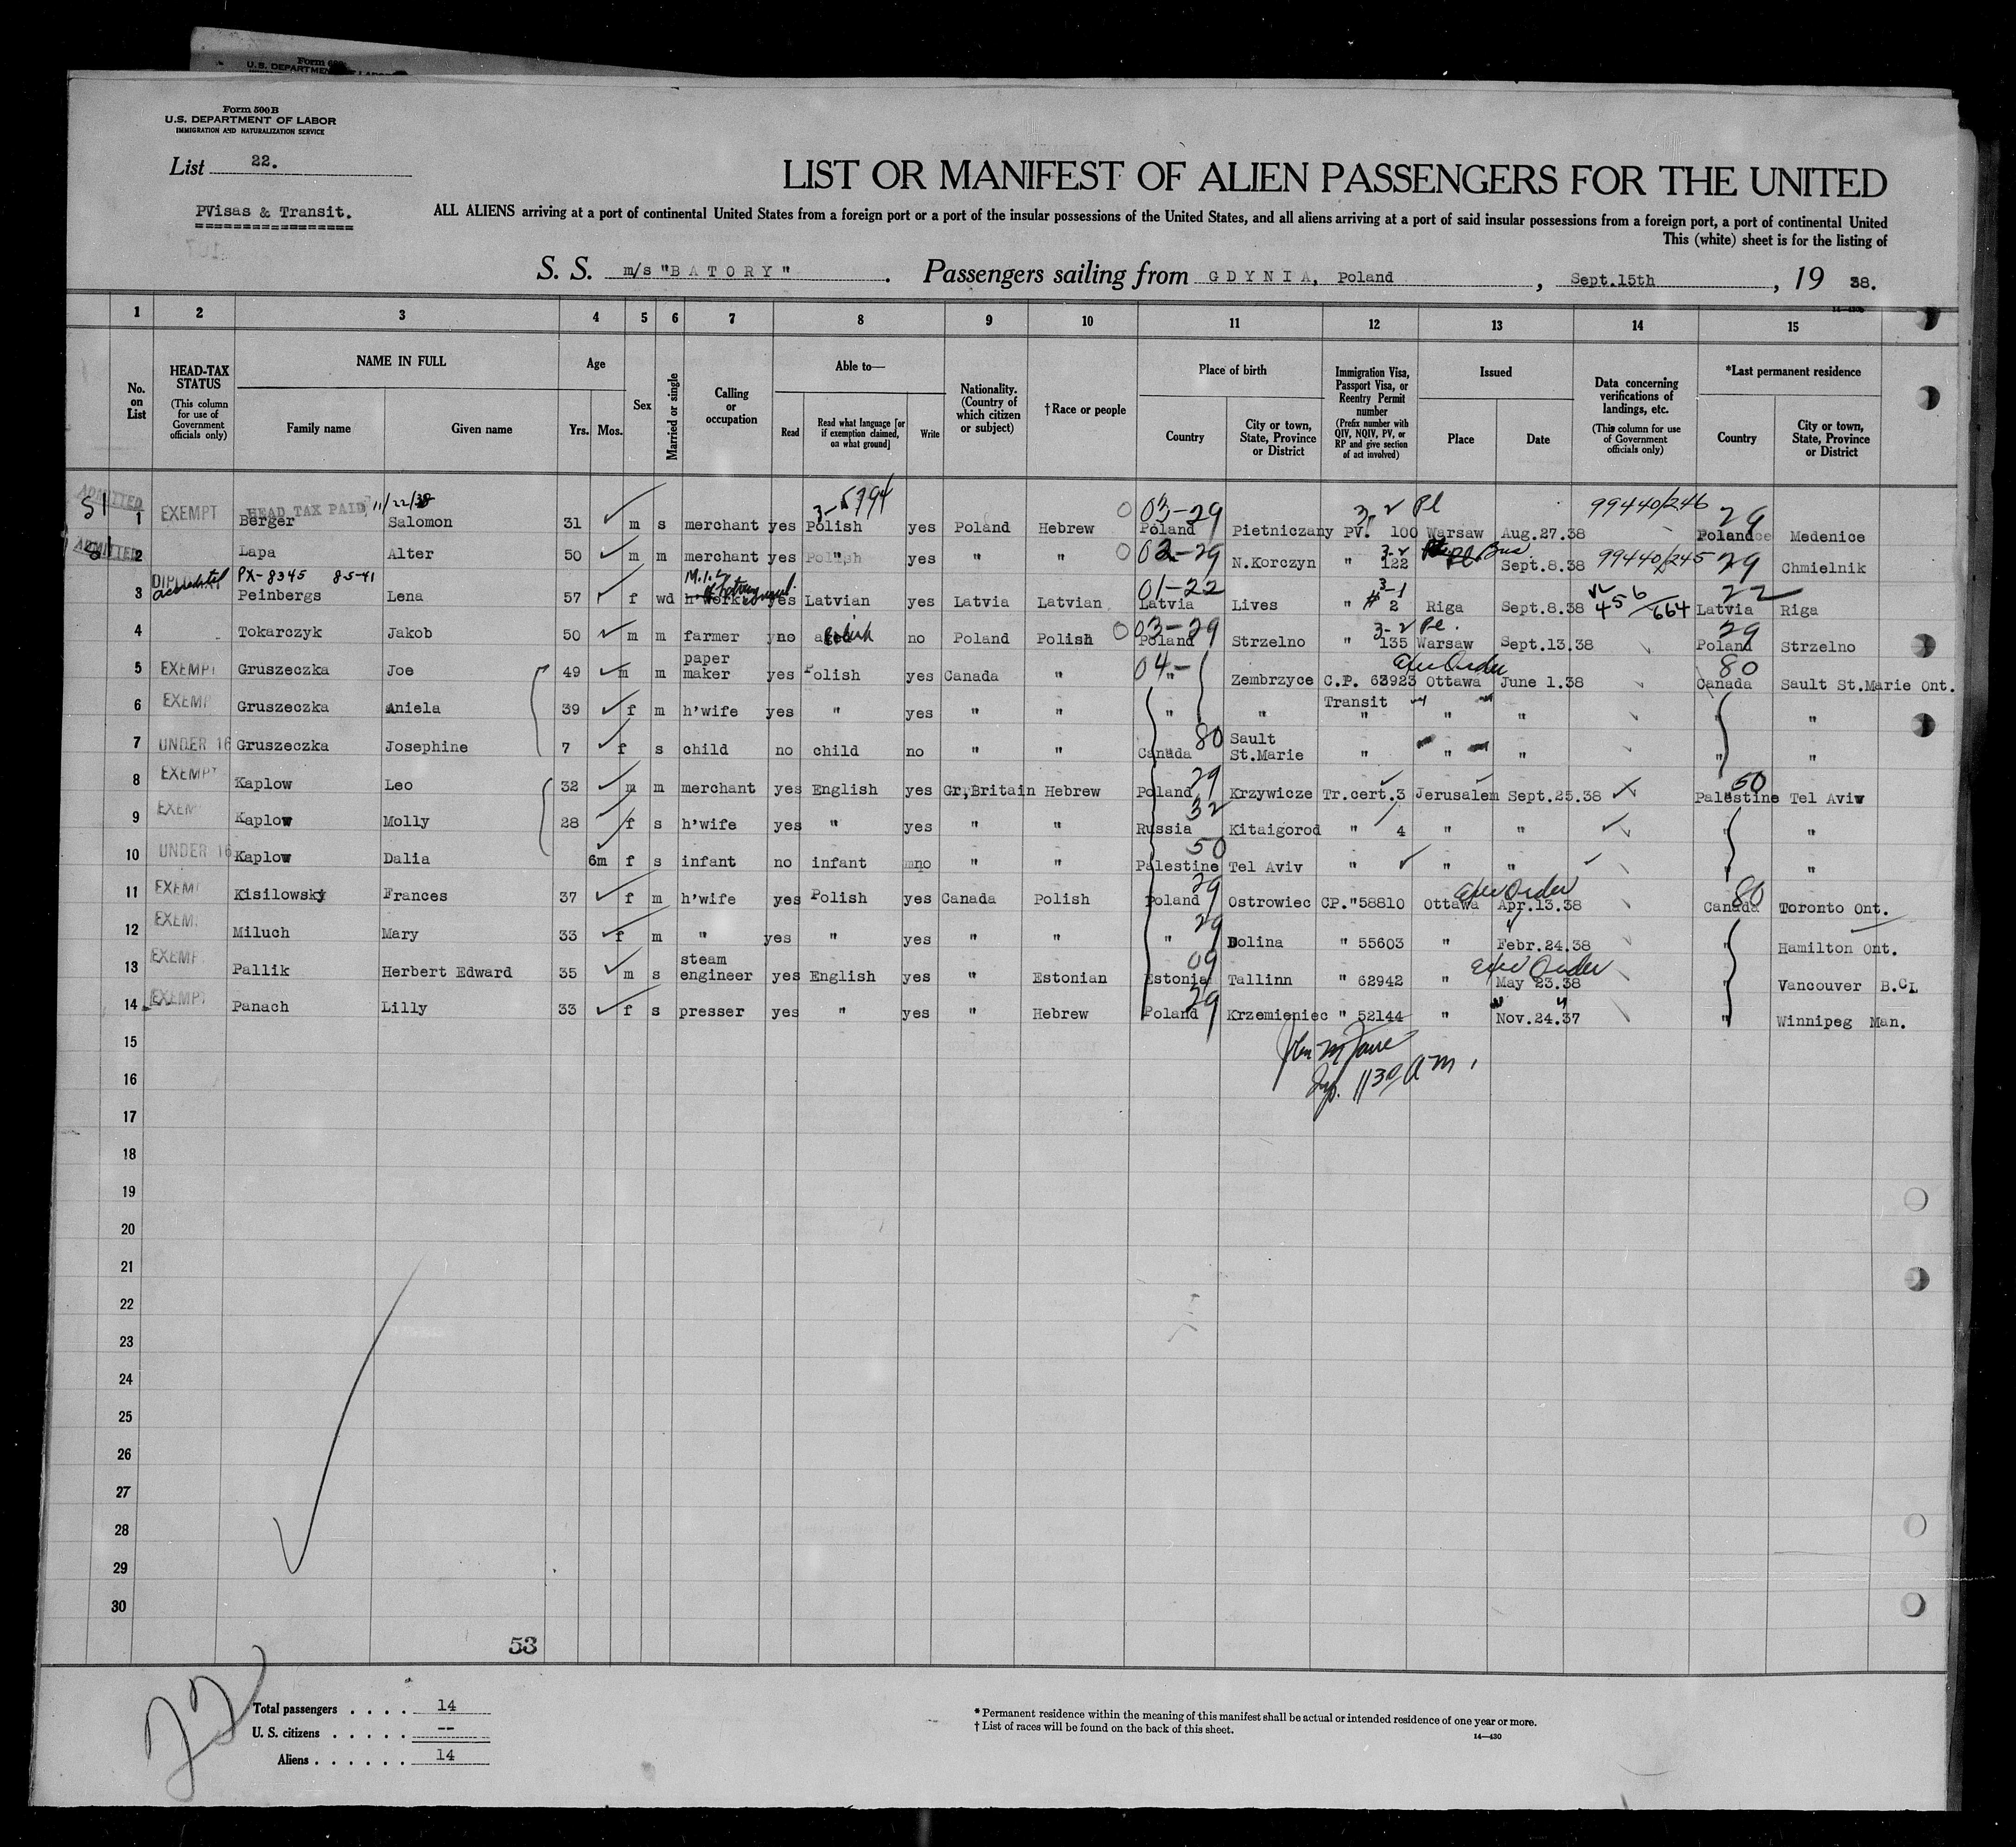 Form 500B
U.S. DEPARTMENT OF LABOR
IMMIGRATION AND NATURALIZATION SERVICE
List 22.
LIST OR MANIFEST OF ALIEN PASSENGERS FOR THE UNITED
PVisas & Transit.
ALL ALIENS arriving at a port of continental United States from a foreign port or a port of the insular possessions of the United States, and all aliens arriving at a port of said insular possessions from a foreign port, a port of continental United
This (white) sheet is for the listing of
S. S. m/s "BATORY". Passengers sailing from GDYNIA, Poland, Sept.15th, 19 38.
1 2 3 4 5 6 7 8 9 10 11 12 13 14 15
No. on List
HEAD-TAX STATUS (This column for use of Government officials only)
NAME IN FULL Family name Given name
Age Yrs. Mos.
Sex
Married or single
Calling or occupation
Able to— Read Read what language [or if exemption claimed, on what ground] Write
Nationality. (Country of which citizen or subject)
†Race or people
Place of birth Country City or town, State, Province or District
Immigration Visa, Passport Visa, or Reentry Permit number (Prefix number with QIV, NQIV, PV, or RP and give section of act involved)
Issued Place Date
Data concerning verifications of landings, etc. (This column for use of Government officials only)
*Last permanent residence Country City or town, State, Province or District
ADMITTED HEAD TAX PAID 11/22/38 3-5794 03-29 3-2 Pl 99440/246 29
1 EXEMPT Berger Salomon 31 m s merchant yes Polish yes Poland Hebrew Poland Pietniczany PV. 100 Warsaw Aug.27.38 Poland Medenice
ADMITTED 03-29 3-2 99440/245 29
2 Lapa Alter 50 m m merchant yes Polish yes " " N.Korczyn " 122 Sept.8.38 Chmielnik
PX-8345 8-5-41 01-22 3-1 456/664 22
3 Peinbergs Lena 57 f wd h'work yes Latvian yes Latvia Latvian Latvia Lives " # 2 Riga Sept.8.38 Latvia Riga
03-29 3-2 Pl. 29
4 Tokarczyk Jakob 50 m m farmer no Polish no Poland Polish Poland Strzelno " 135 Warsaw Sept.13.38 Poland Strzelno
5 EXEMPT Gruszeczka Joe 49 m m paper maker yes Polish yes Canada " 04- " Zembrzyce C.P. 63923 Ottawa June 1.38 80 Canada Sault St.Marie Ont.
6 EXEMP Gruszeczka Aniela 39 f m h'wife yes " yes " " " " Transit " " " " "
7 UNDER 16 Gruszeczka Josephine 7 f s child no child no " " Canada 80 Sault St.Marie " " " " "
8 EXEMPT Kaplow Leo 32 m m merchant yes English yes Gr,Britain Hebrew Poland 29 Krzywicze Tr.cert.3 Jerusalem Sept.25.38 50 Palestine Tel Aviv
9 EXEM Kaplow Molly 28 f s h'wife yes " yes " " Russia 32 Kitaigorod " 4 " " " "
10 UNDER 16 Kaplow Dalia 6m f s infant no infant no " " Palestine 50 Tel Aviv " " " " "
11 EXEM Kisilowsky Frances 37 f m h'wife yes Polish yes Canada Polish Poland 29 Ostrowiec CP."58810 Ottawa Apr.13.38 80 Canada Toronto Ont.
12 EXEM. Miluch Mary 33 f m " yes " yes " " " 29 Dolina " 55603 " Febr.24.38 " Hamilton Ont.
13 EXEMP. Pallik Herbert Edward 35 m s steam engineer yes English yes " Estonian Estonia 09 Tallinn " 62942 " May 23.38 " Vancouver B.C
14 EXEMPT Panach Lilly 33 f s presser yes " yes " Hebrew Poland 29 Krzemieniec " 52144 " Nov.24.37 " Winnipeg Man.
15
16
17
18
19
20
21
22
23
24
25
26
27
28
29
30
53
Total passengers . . . . 14
U. S. citizens . . . . . --
Aliens . . . . . . 14
* Permanent residence within the meaning of this manifest shall be actual or intended residence of one year or more.
† List of races will be found on the back of this sheet.
14—430